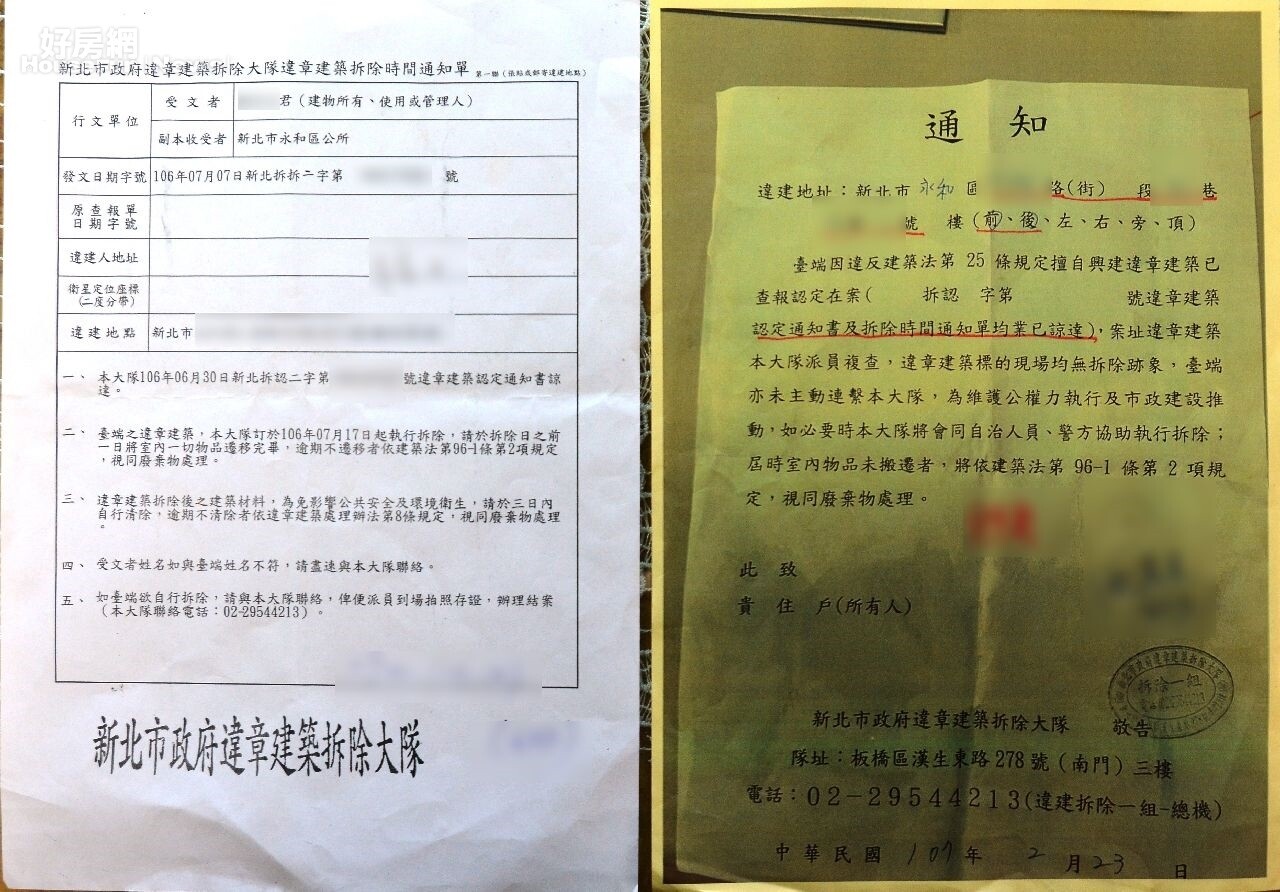 好房網
新北市政府違章建築拆除大隊違章建築拆除時間通知單 第一聯（張貼或郵寄違建地點）
行文單位
受文者
君（建物所有、使用或管理人）
副本收受者
新北市永和區公所
發文日期字號
106年07月07日新北拆拆二字第 號
原查報單
日期字號
違建人地址
衛星定位座標
(二度分帶)
違建地點
新北市
一、 本大隊106年06月30日新北拆認二字第 號違章建築認定通知書諒
達。
二、 臺端之違章建築，本大隊訂於106年07月17日起執行拆除，請於拆除日之前
一日將室內一切物品遷移完畢，逾期不遷移者依建築法第96-1條第2項規定
，視同廢棄物處理。
三、 違章建築拆除後之建築材料，為免影響公共安全及環境衛生，請於三日內
自行清除，逾期不清除者依違章建築處理辦法第8條規定，視同廢棄物處理
。
四、 受文者姓名如與臺端姓名不符，請盡速與本大隊聯絡。
五、 如臺端欲自行拆除，請與本大隊聯絡，俾便派員到場拍照存證，辦理結案
（本大隊聯絡電話：02-29544213）。
新北市政府違章建築拆除大隊
通 知
違建地址：新北市 永和 區 路(街) 段 巷
號 樓 (前、後、左、右、旁、頂)
臺端因違反建築法第 25 條規定擅自興建違章建築已
查報認定在案( 拆認 字第 號違章建築
認定通知書及拆除時間通知單均業已諒達)，案址違章建築
本大隊派員複查，違章建築標的現場均無拆除跡象，臺端
亦未主動連繫本大隊，為維護公權力執行及市政建設推
動，如必要時本大隊將會同自治人員、警方協助執行拆除；
屆時室內物品未搬遷者，將依建築法第 96-1 條第 2 項規
定，視同廢棄物處理。
此 致
貴 住 戶(所有人)
新北市政府違章建築拆除大隊
拆除一組
新北市政府違章建築拆除大隊 敬告
隊址：板橋區漢生東路278號（南門）三樓
電話：02-29544213(違建拆除一組-總機)
中華民國 107 年 2 月 23 日